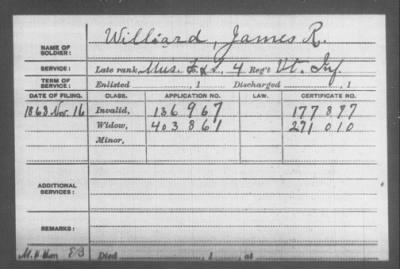 NAME OF SOLDIER: Williard, James R.
SERVICE: Late rank, Mus. F & S, 4 Reg't Vt. Inf.
TERM OF SERVICE: Enlisted , 1 Discharged , 1
DATE OF FILING. CLASS. APPLICATION NO. LAW. CERTIFICATE NO.
1868 Nov. 16 Invalid, 136967 177887
Widow, 403861 271010
Minor,
ADDITIONAL SERVICES:
REMARKS:
Died , 1 , at